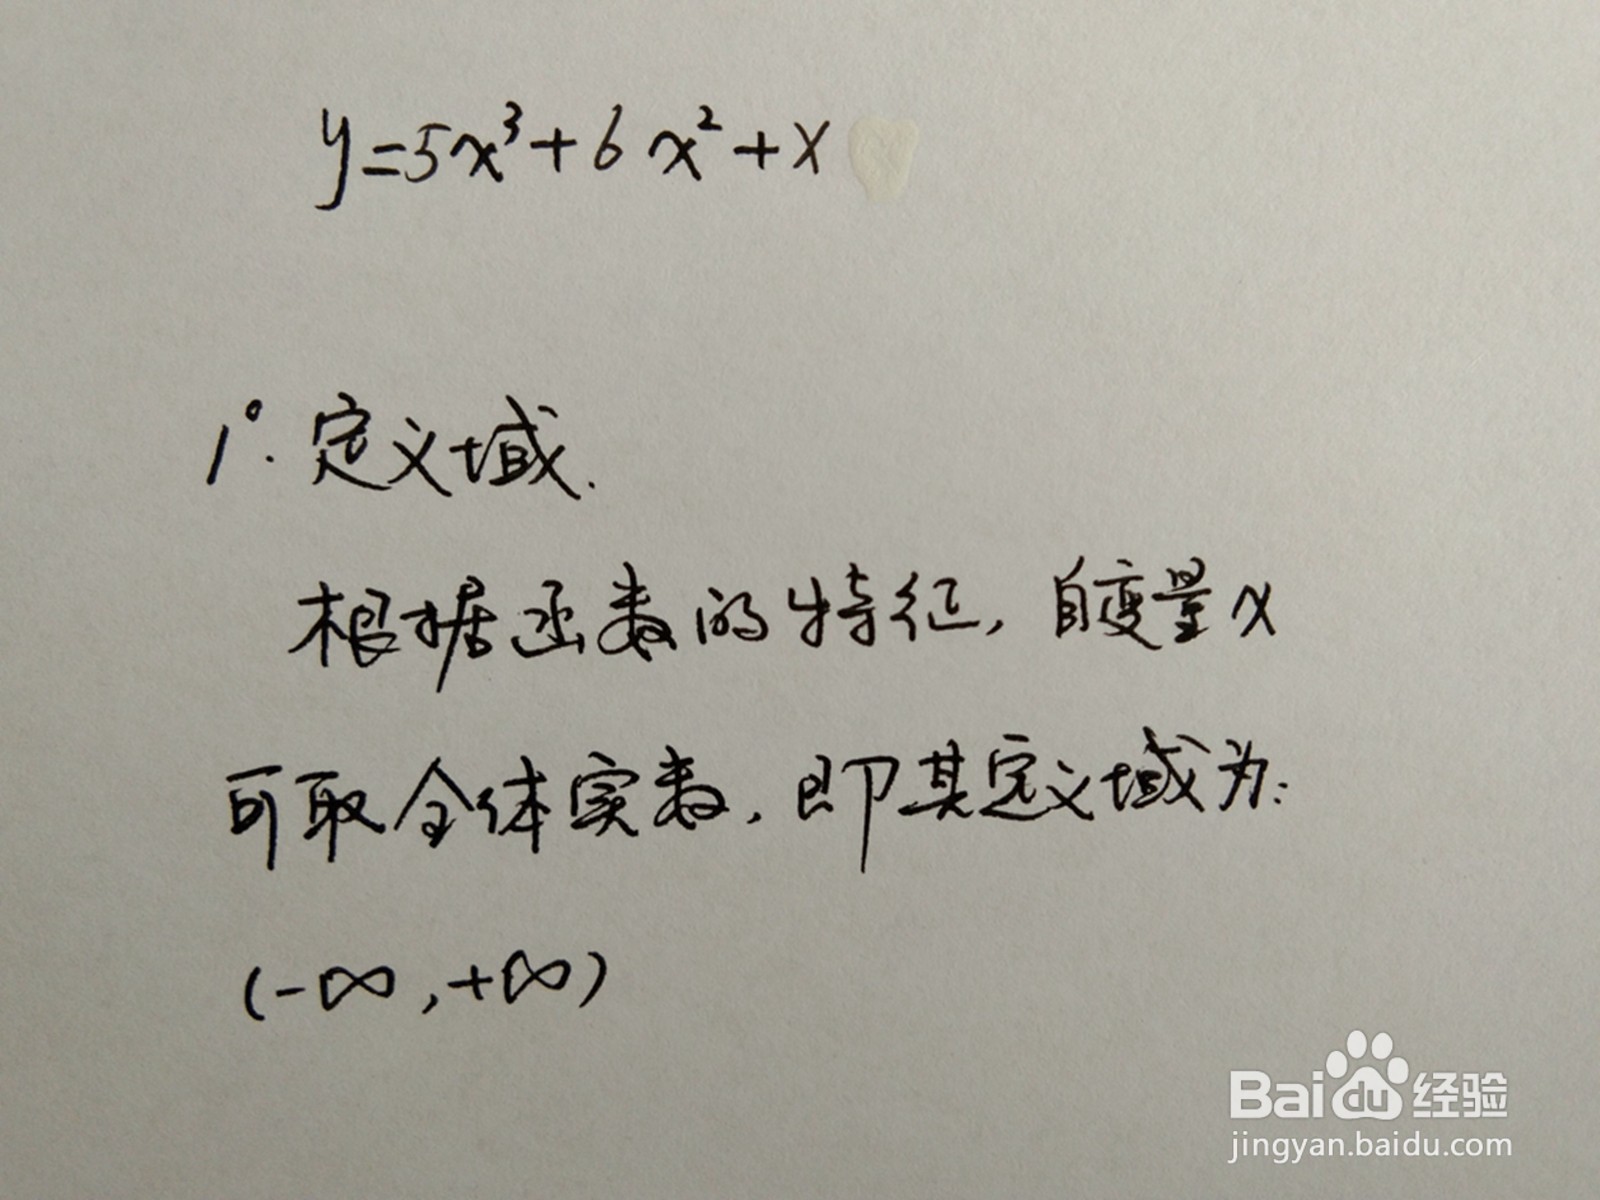 y=5x³+6x²+x
1°.定义域.
根据函数的特征,自变量x
可取全体实数,即其定义域为:
(-∞,+∞)
Bai du 经验
jingyan.baidu.com